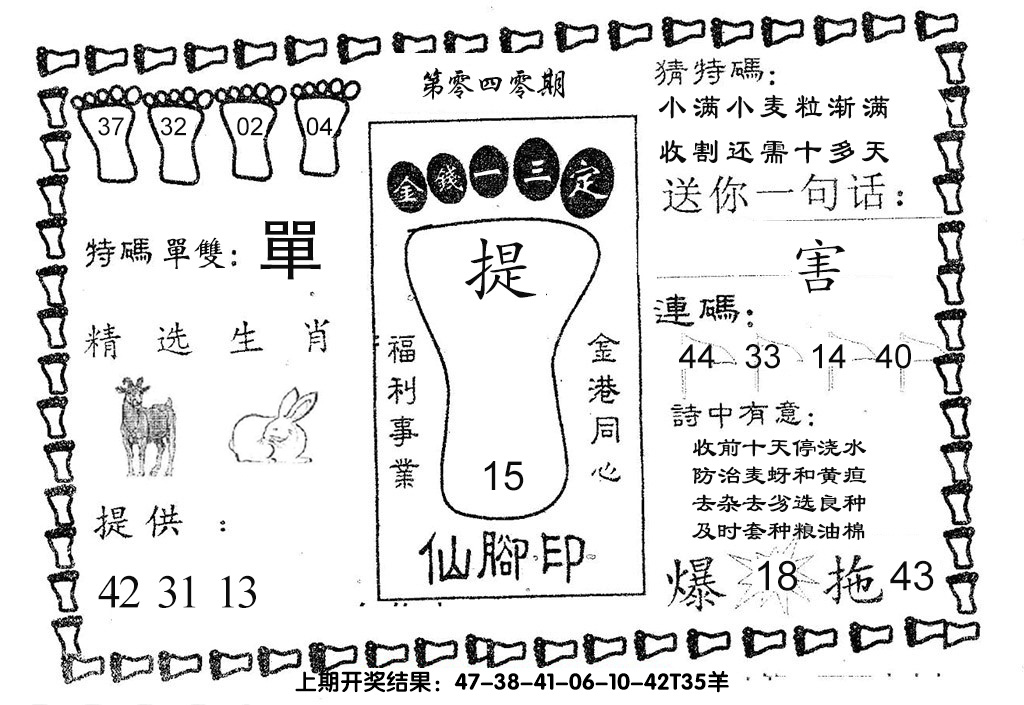 第零四零期
37 32 02 04
特碼單雙：單
精选生肖
提供：
42 31 13
金錢一三定
提
福利事業
金港同心
15
仙腳印
猜特碼：
小满小麦粒渐满
收割还需十多天
送你一句话：
害
連碼：
44 33 14 40
詩中有意：
收前十天停浇水
防治麦蚜和黄疸
去杂去劣选良种
及时套种粮油棉
爆 18 拖 43
上期开奖结果：47-38-41-06-10-42T35羊